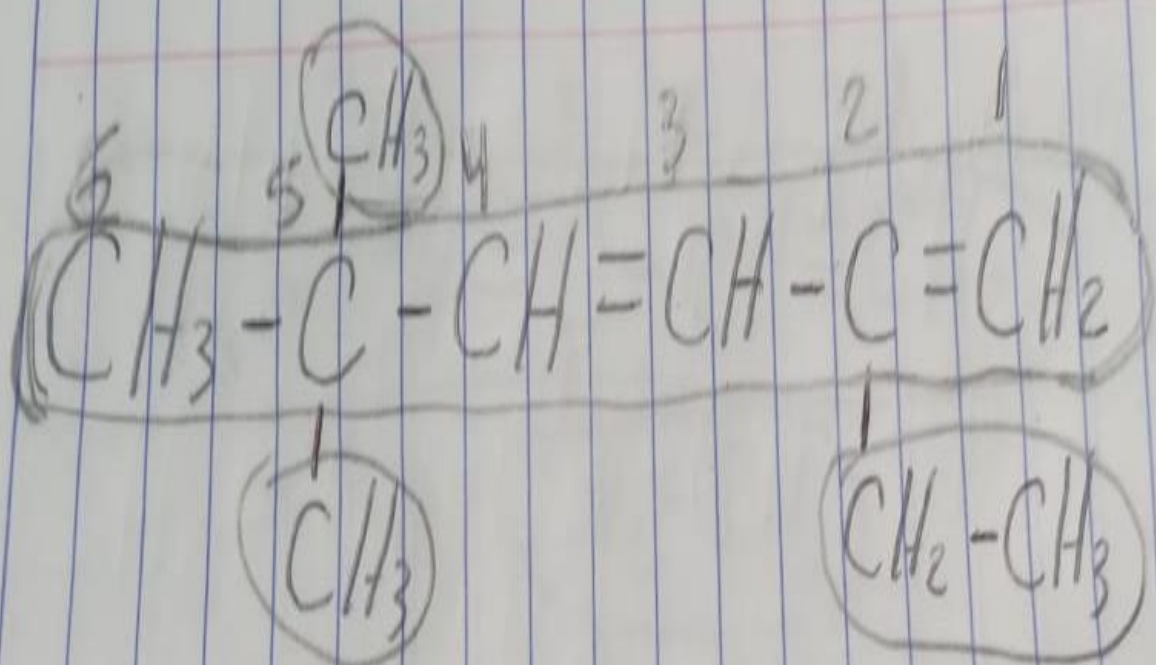 CH₃
6 5 4 3 2 1
CH₃-C-CH=CH-C=CH₂
CH₃ CH₂-CH₃